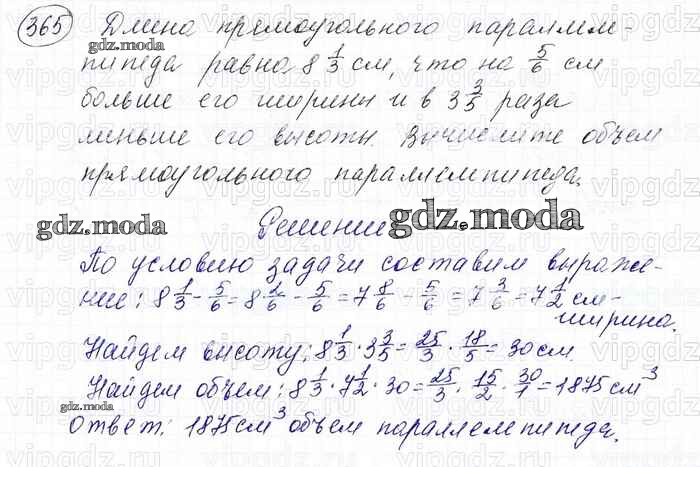 365 Длина прямоугольного паралле-
gdz.moda
пипеда равна 8 1/3 см, что на 5/6 см
больше его ширины и в 3 3/5 раза
меньше его высоты. Вычислите объем
прямоугольного параллелепипеда.
gdz.moda Решение gdz.moda
По условию задачи составим выраже-
ние: 8 1/3 - 5/6 = 8 2/6 - 5/6 = 7 8/6 - 5/6 = 7 3/6 = 7 1/2 см -
ширина.
Найдем высоту: 8 1/3 · 3 3/5 = 25/3 · 18/5 = 30 см.
gdz.moda
Найдем объем: 8 1/3 · 7 1/2 · 30 = 25/3 · 15/2 · 30/1 = 1875 см³
gdz.moda
Ответ: 1875 см³ объем параллелепипеда.